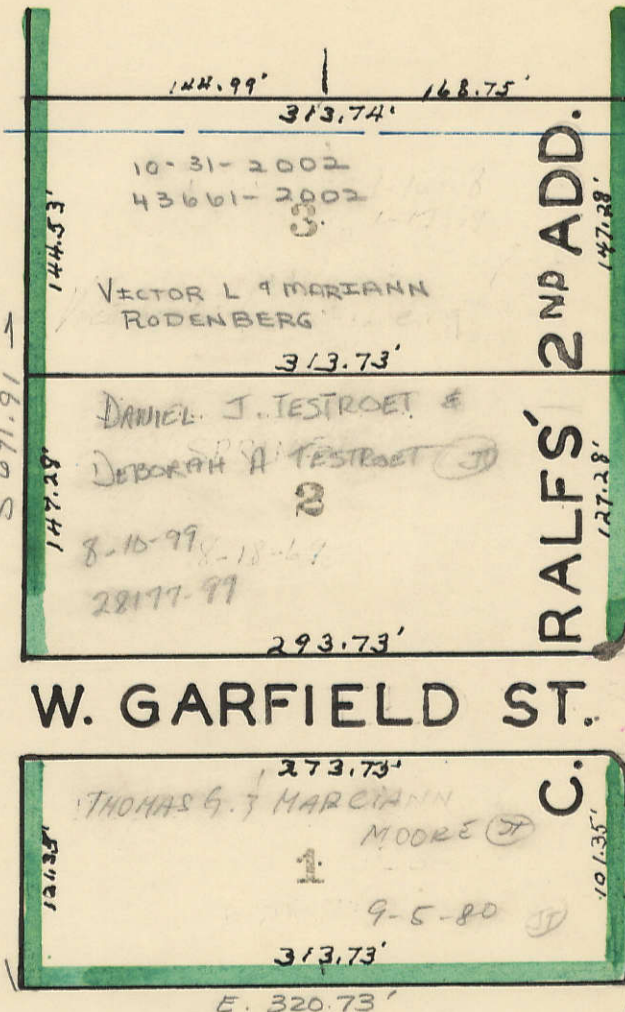 144.99' 168.75'
313.74'
10-31-2002
43661-2002
3
144.53'
147.28'
VICTOR L & MARIANN
RODENBERG
313.73'
DANIEL J. TESTROET &
DEBORAH A TESTROET JT
2
147.28'
127.28'
8-10-99 8-18-69
28177-99
293.73'
C. RALFS' 2ND ADD.
W. GARFIELD ST.
273.73'
THOMAS G. & MARCIANN
MOORE JT
1
121.35'
101.35'
9-5-80 JT
313.73'
E. 320.73'